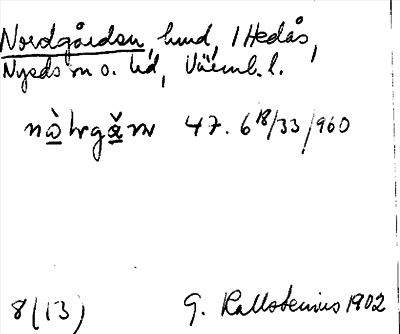 Nordgården, hmd, 1 Hedås,
Nysds sn o. hd, Värml. l.
nàhrgăɲ 47. 6 18/33/960
8(13) G. Kallstenius 1902